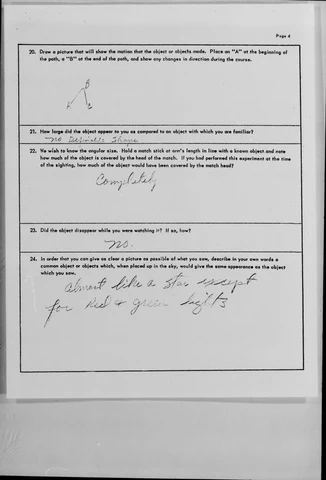 Page 4
20. Draw a picture that will show the motion that the object or objects made. Place an "A" at the beginning
of the path, a "B" at the end of the path, and show any changes in direction during the course.
B
A
21. How large did the object appear to you as compared to an object with which you are familiar?
No Definite Shape
22. We wish to know the angular size. Hold a match stick at arm's length in line with a known object and note
how much of the object is covered by the head of the match. If you had performed this experiment at the time
of the sighting, how much of the object would have been covered by the match head?
Completely
23. Did the object disappear while you were watching it? If so, how?
no.
24. In order that you can give as clear a picture as possible of what you saw, describe in your own words a
common object or objects which, when placed up in the sky, would give the same appearance as the object
which you saw.
almost like a star except
for Red & green lights